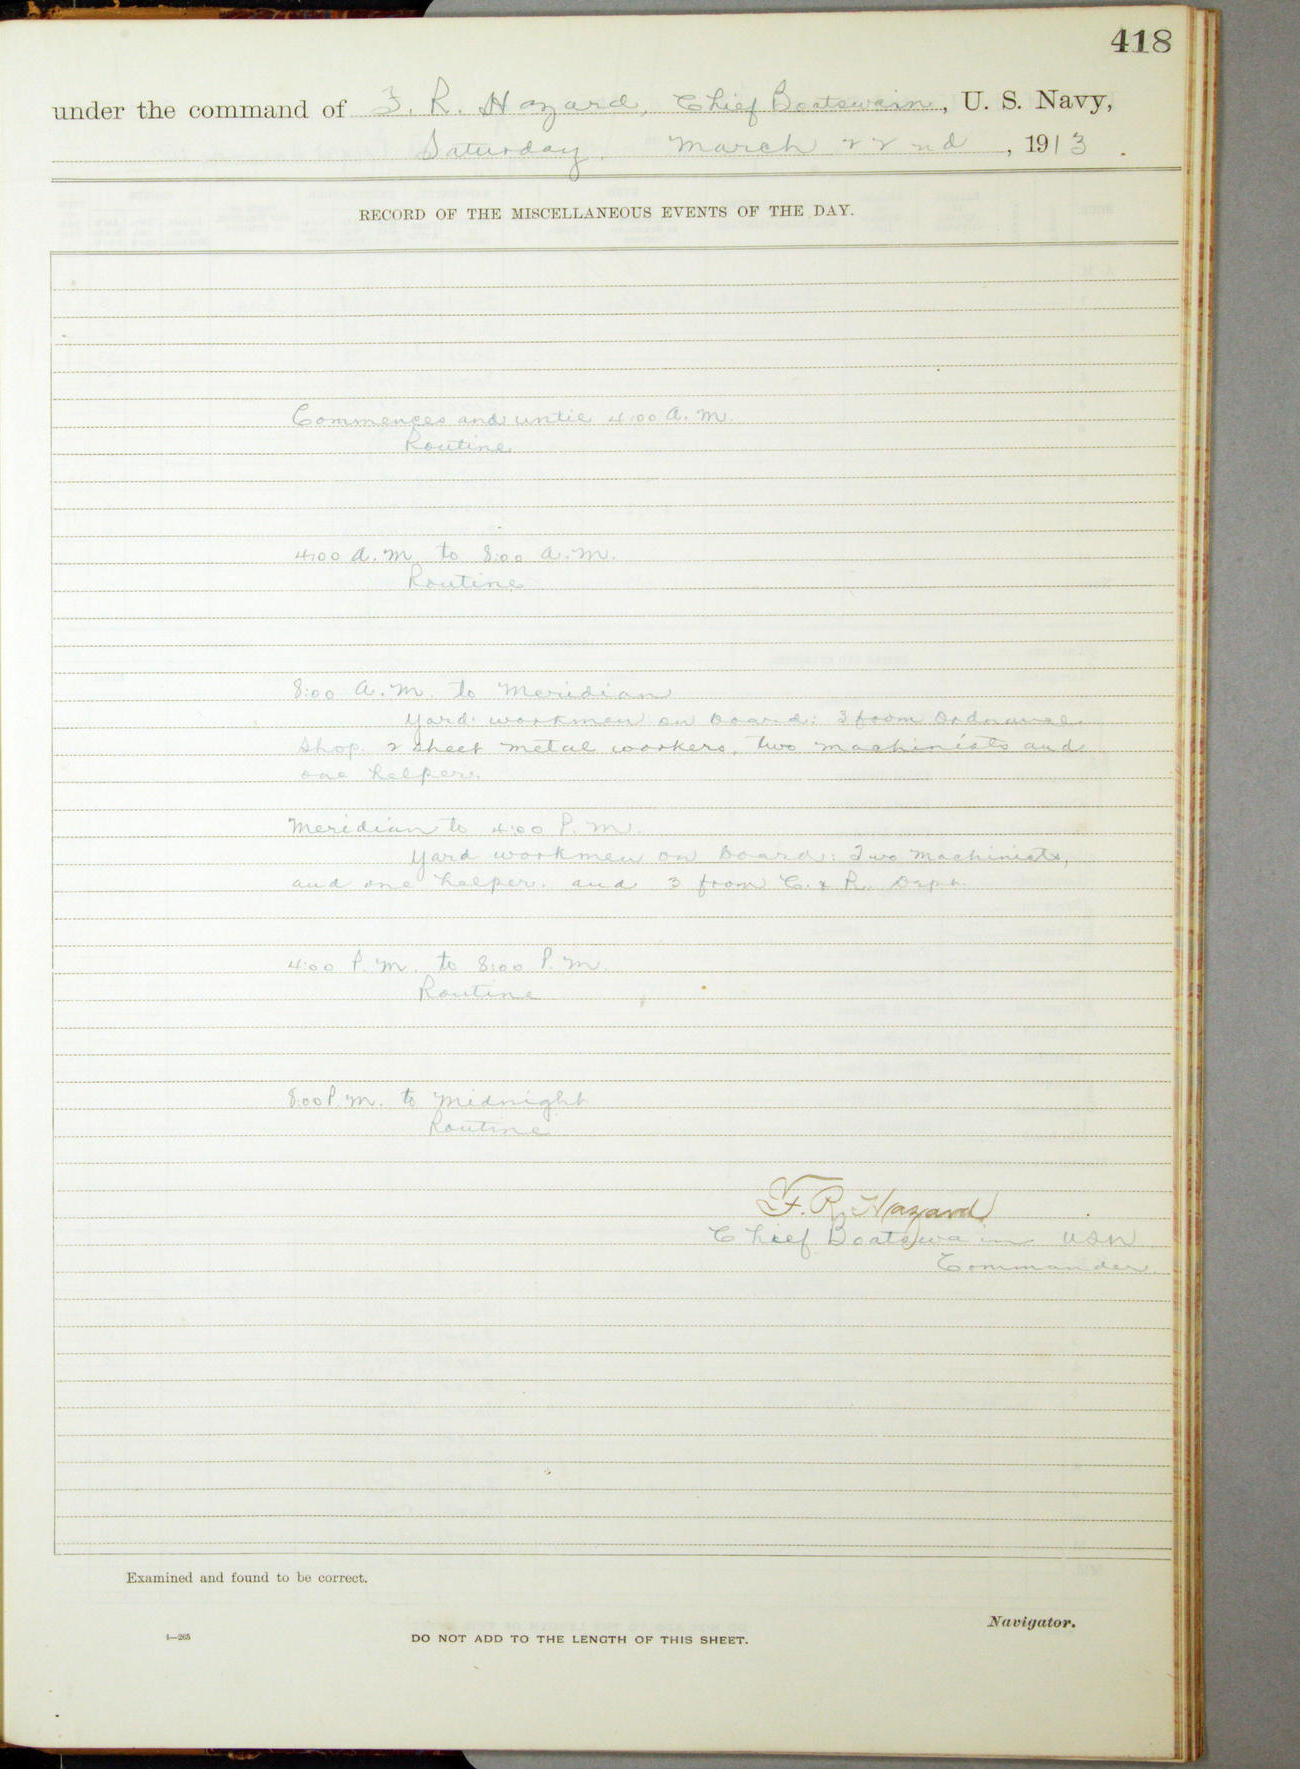 418
under the command of F. R. Hazard, Chief Boatswain, U. S. Navy,
Saturday, March 22nd, 1913.
RECORD OF THE MISCELLANEOUS EVENTS OF THE DAY.
Commences and until 4:00 A.M.
Routine
4:00 A.M. to 8:00 A.M.
Routine
8:00 A.M. to Meridian
Yard workmen on board: 3 from Ordnance
Shop. 2 sheet metal workers, two machinists and
one helper.
Meridian to 4:00 P.M.
Yard workmen on board: Two Machinists,
and one helper. and 3 from C. & R. Dept.
4:00 P.M. to 8:00 P.M.
Routine
8:00 P.M. to Midnight
Routine
F. R. Hazard
Chief Boatswain USN
Commander.
Examined and found to be correct.
Navigator.
1—265
DO NOT ADD TO THE LENGTH OF THIS SHEET.